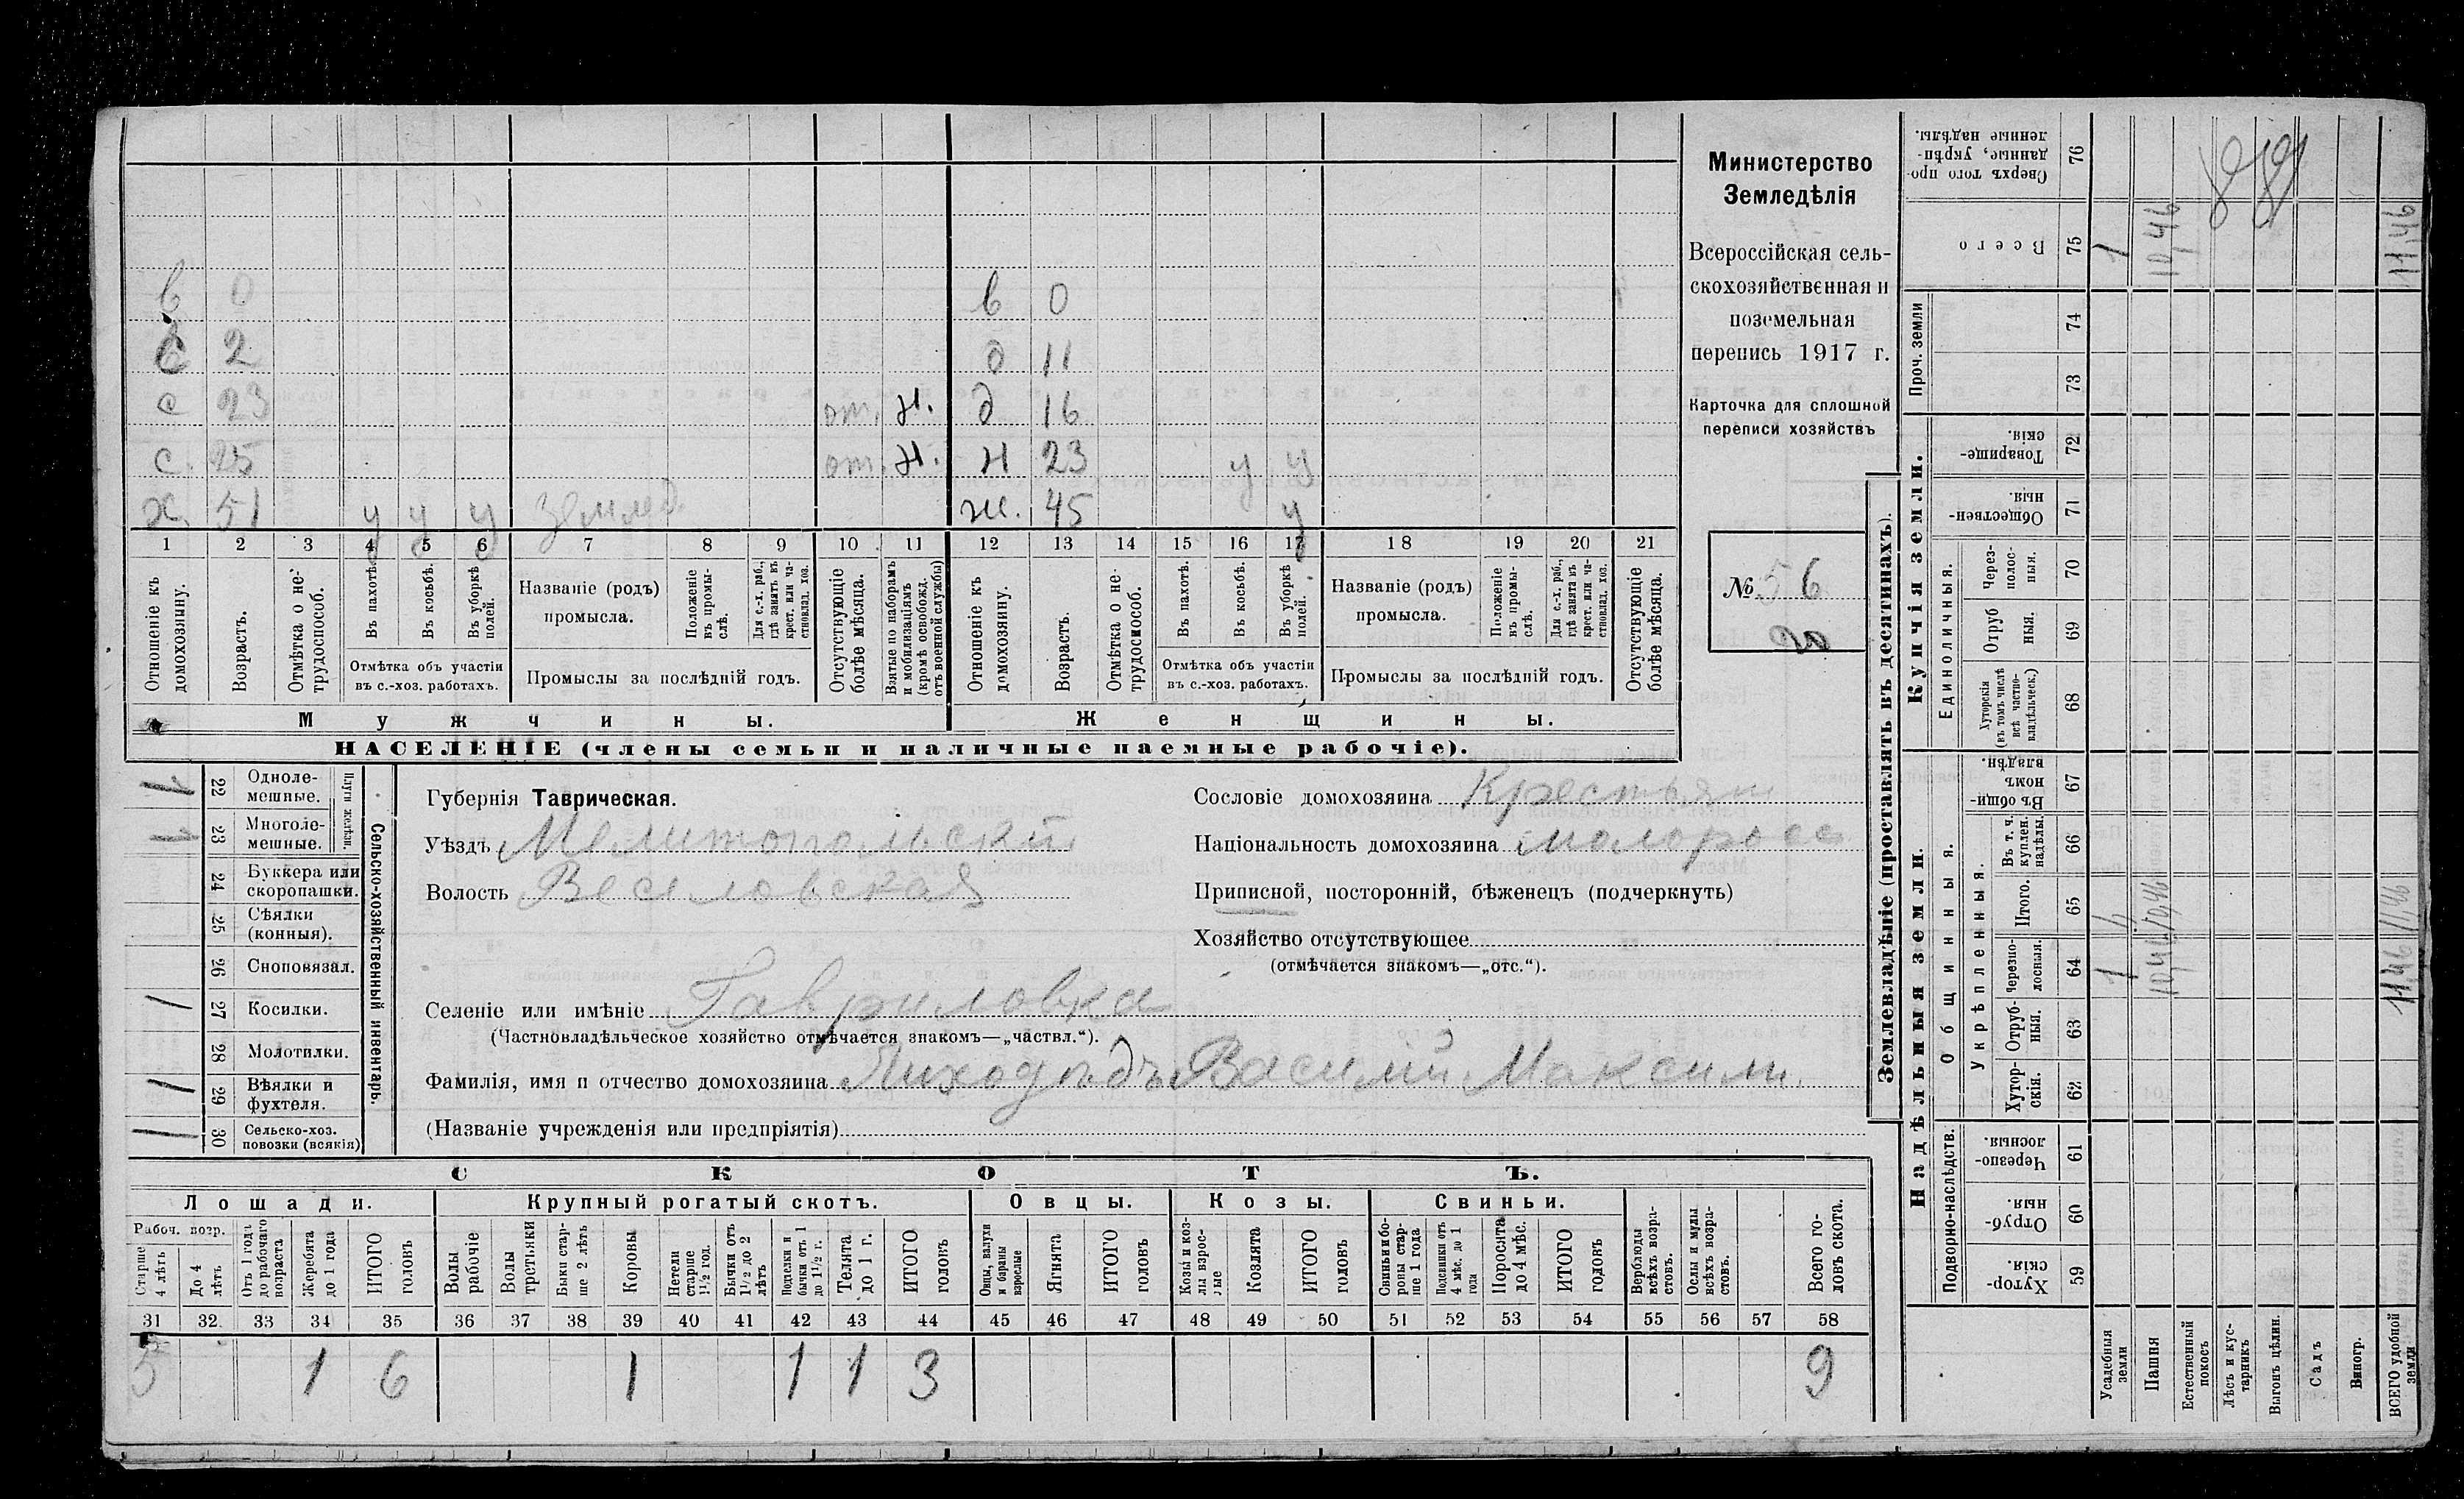 Министерство
Земледѣлія
Всероссійская сель-
скохозяйственная и
поземельная
перепись 1917 г.
Карточка для сплошной
переписи хозяйствъ
№ 56
в 0 в 0
2 д 11
с 23 от. н. д 16
с. 25 от. н. н 23 у у
х. 51 у у у землед. ж. 45 у
1 2 3 4 5 6 7 8 9 10 11 12 13 14 15 16 17 18 19 20 21
Отношеніе къ домохозяину.
Возрастъ.
Отмѣтка о не-трудоспособ.
Въ пахотѣ.
Въ косьбѣ.
Въ уборкѣ полей.
Отмѣтка объ участіи
въ с.-хоз. работахъ.
Названіе (родъ)
промысла.
Положеніе въ промы-слѣ.
Для с.-х. раб., гдѣ занятъ въ крест. или ча-стновлад. хоз.
Промыслы за послѣдній годъ.
Отсутствующіе болѣе мѣсяца.
Взятые по наборамъ и мобилизаціямъ (кромѣ освобожд. отъ военной службы)
Отношеніе къ домохозяину.
Возрастъ.
Отмѣтка о не-трудоспособ.
Въ пахотѣ.
Въ косьбѣ.
Въ уборкѣ полей.
Отмѣтка объ участіи
въ с.-хоз. работахъ.
Названіе (родъ)
промысла.
Положеніе въ промы-слѣ.
Для с.-х. раб., гдѣ занятъ въ крест. или ча-стновлад. хоз.
Промыслы за послѣдній годъ.
Отсутствующіе болѣе мѣсяца.
Мужчины. Женщины.
НАСЕЛЕНІЕ (члены семьи и наличные наемные рабочіе).
Сельско-хозяйственный инвентарь.
Плуги желѣзн.
1 22 Одноле-мешные.
1 23 Многоле-мешные.
24 Буккера или скоропашки.
25 Сѣялки (конныя).
26 Сноповязал.
1 27 Косилки.
28 Молотилки.
1 29 Вѣялки и фухтеля.
11 30 Сельско-хоз. повозки (всякія)
Губернія Таврическая.
Уѣздъ Мелитопольскій
Волость Веселовская
Селеніе или имѣніе Гавриловка
(Частновладѣльческое хозяйство отмѣчается знакомъ—„частвл.“).
Фамилія, имя и отчество домохозяина Лиходѣдъ Василій Максим.
(Названіе учрежденія или предпріятія)
Сословіе домохозяина Крестьян
Національность домохозяина малоросс
Приписной, посторонній, бѣженецъ (подчеркнуть)
Хозяйство отсутствующее
(отмѣчается знакомъ—„отс.“).
СКОТЪ.
Лошади. Крупный рогатый скотъ. Овцы. Козы. Свиньи.
Рабоч. возр.
Старше 4 лѣтъ
До 4 лѣтъ
Отъ 1 года до рабочаго возраста
Жеребята до 1 года
ИТОГО головъ
Волы рабочіе
Волы третьяки
Быки стар-ше 2 лѣтъ
Коровы
Нетели старше 1½ год.
Бычки отъ 1½ до 2 лѣтъ
Подтелки и бычки отъ 1 до 1½ г.
Телята до 1 г.
ИТОГО головъ
Овцы, валухи и бараны взрослые
Ягнята
ИТОГО головъ
Козы и коз-лы взрос-лые
Козлята
ИТОГО головъ
Свиньи и бо-ровы стар-ше 1 года
Подсвинки отъ 4 мѣс. до 1 года
Поросята до 4 мѣс.
ИТОГО головъ
Верблюды всѣхъ возра-стовъ.
Ослы и мулы всѣхъ возра-стовъ.
Всего го-ловъ скота.
31 32 33 34 35 36 37 38 39 40 41 42 43 44 45 46 47 48 49 50 51 52 53 54 55 56 57 58
5 1 6 1 1 1 3 9
Землевладѣніе (проставлять въ десятинахъ).
Надѣльныя земли.
Подворно-наслѣдств.
59 Хутор-скія.
60 Отруб-ныя.
61 Черезпо-лосныя.
Общинныя.
Укрѣпленныя.
62 Хутор-скія.
63 Отруб-ныя.
64 Черезпо-лосныя. 1 10,46 11,46
65 Итого. 1 10,46 11,46
66 Въ т. ч. куплен. надѣлы.
67 Въ общи-номъ владѣн.
Купчія земли.
Единоличныя.
68 Хуторскія (въ томъ числѣ всѣ частно-владѣльческ.)
69 Отруб ныя.
70 Через-полос-ныя.
71 Обществен-ныя.
72 Товарище-скія.
Проч. земли
73 74
75 Всего 1 10,46 11,46
76 Сверхъ того про-данные, укрѣп-ленные надѣлы.
Усадебныя земли
Пашня
Естественный покосъ
Лѣсъ и кус-тарникъ
Выгонъ цѣлин.
Садъ
Виногр.
ВСЕГО удобной земли